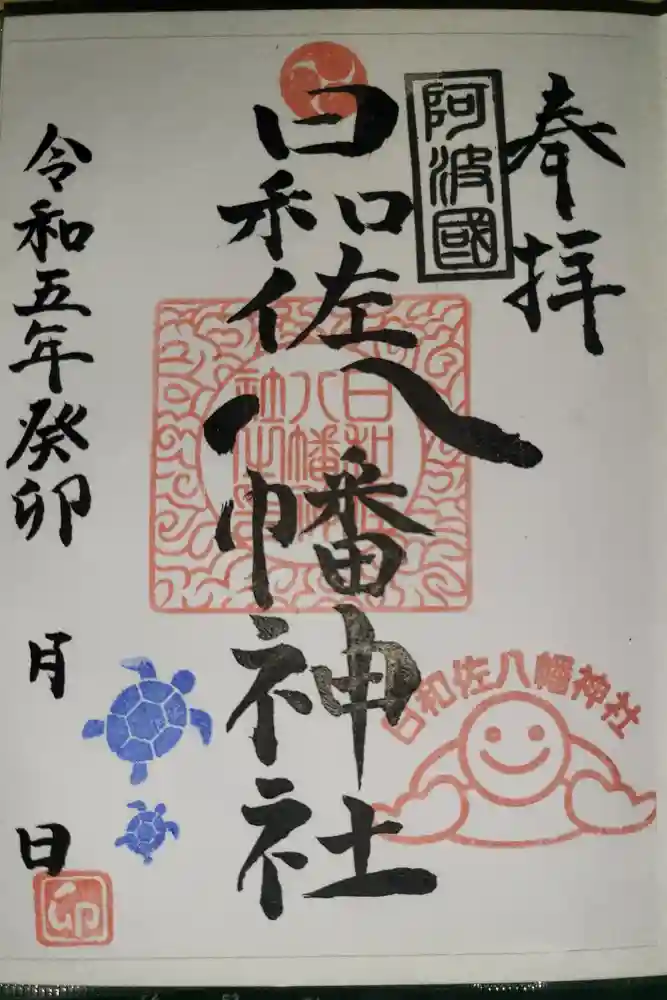 奉拝
阿波國
日和佐八幡神社
日和佐八幡神社
令和五年癸卯
月
日
卯